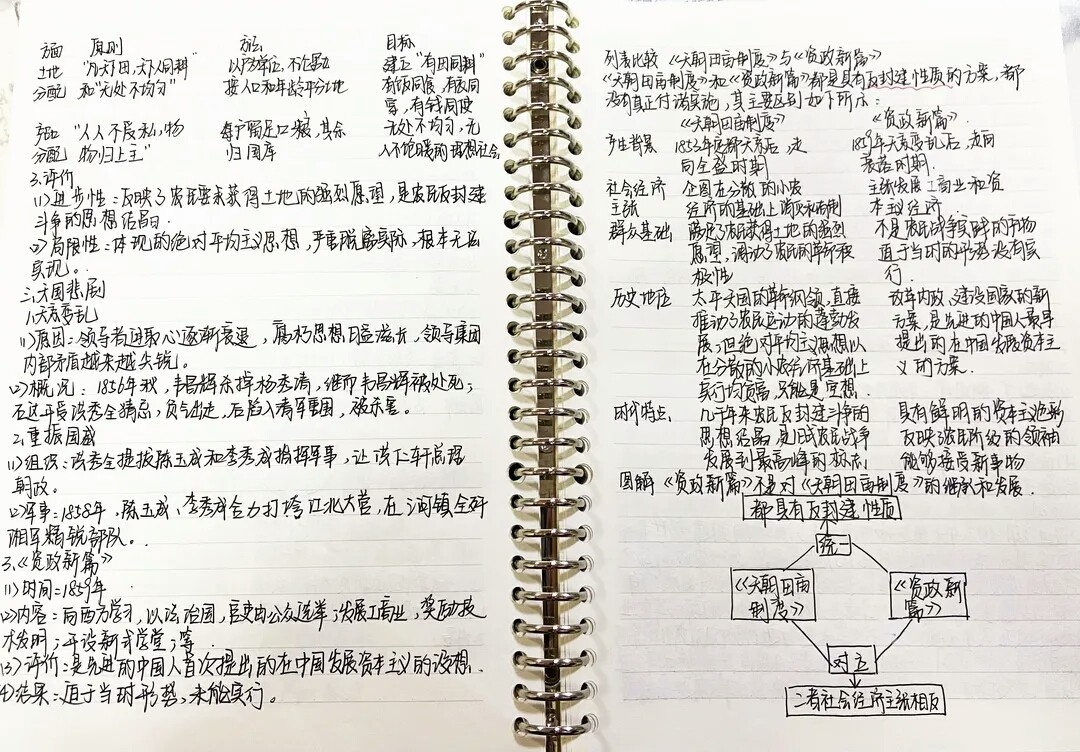 方面 原则 方法 目标
土地 "凡天下田,天下人同耕" 以户为单位,不论男女 建立"有田同耕
分配 和"无处不均匀" 按人口和年龄平分土地 有饭同食,有衣同
穿,有钱同使
产品 "人人不受私,物 每户留足口粮,其余 无处不均匀,无
分配 物归上主" 归国库 人不饱暖的理想社会
3.评价
(1)进步性:反映了农民要求获得土地的强烈愿望,是农民反封建
斗争的思想结晶。
(2)局限性:体现的绝对平均主义思想,严重脱离实际,根本无法
实现。
三、天国悲剧
1.天京变乱
(1)原因:领导者进取心逐渐衰退,腐朽思想日益滋长,领导集团
内部矛盾越来越尖锐。
(2)概况:1856年秋,韦昌辉杀掉杨秀清,继而韦昌辉被处死;
石达开受洪秀全猜忌,负气出走,后陷入清军重围,被杀害。
2.重振国威
(1)组织:洪秀全提拔陈玉成和李秀成指挥军事,让洪仁玕总理
朝政。
(2)军事:1858年,陈玉成、李秀成合力打垮江北大营,在三河镇全歼
湘军精锐部队。
3.《资政新篇》
(1)时间:1859年
(2)内容:向西方学习,以法治国,官吏由公众选举;发展工商业,奖励技
术发明;开设新式学堂;等
(3)评价:是先进的中国人首次提出的在中国发展资本主义的设想.
(4)结果:迫于当时形势,未能实行。
列表比较《天朝田亩制度》与《资政新篇》
《天朝田亩制度》和《资政新篇》都是具有反封建性质的方案,都
没有真正付诸实施,其主要区别如下所示:
《天朝田亩制度》 《资政新篇》.
产生背景 1853年定都天京后,走 1859年天京变乱后,走向
向全盛时期 衰落时期.
社会经济 企图在分散的小农 主张发展工商业和资
主张 经济的基础上消灭私有制 本主义经济
群众基础 农民获得土地的强烈 不是农民战争实践的产物
愿望,调动了农民的革命积 迫于当时的形势没有实
极性 行.
历史地位 太平天国的革命纲领,直接 改革内政、建设国家的新
推动了农民运动的蓬勃发 方案,是先进的中国人最早
展;但绝对平均主义思想以 提出的在中国发展资本主
在分散的小农经济基础上 义的方案.
实行均贫富,只能是空想.
时代特点. 几千年来农民反封建斗争的 具有鲜明的资本主义色彩
思想结晶,是旧式农民战争 反映农民阶级的领袖
发展到最高峰的标志 能够接受新事物
图解《资政新篇》不是对《天朝田亩制度》的继承和发展.
都具有反封建性质
统一
《天朝田亩
制度》
《资政新
篇》
对立
二者社会经济主张相反